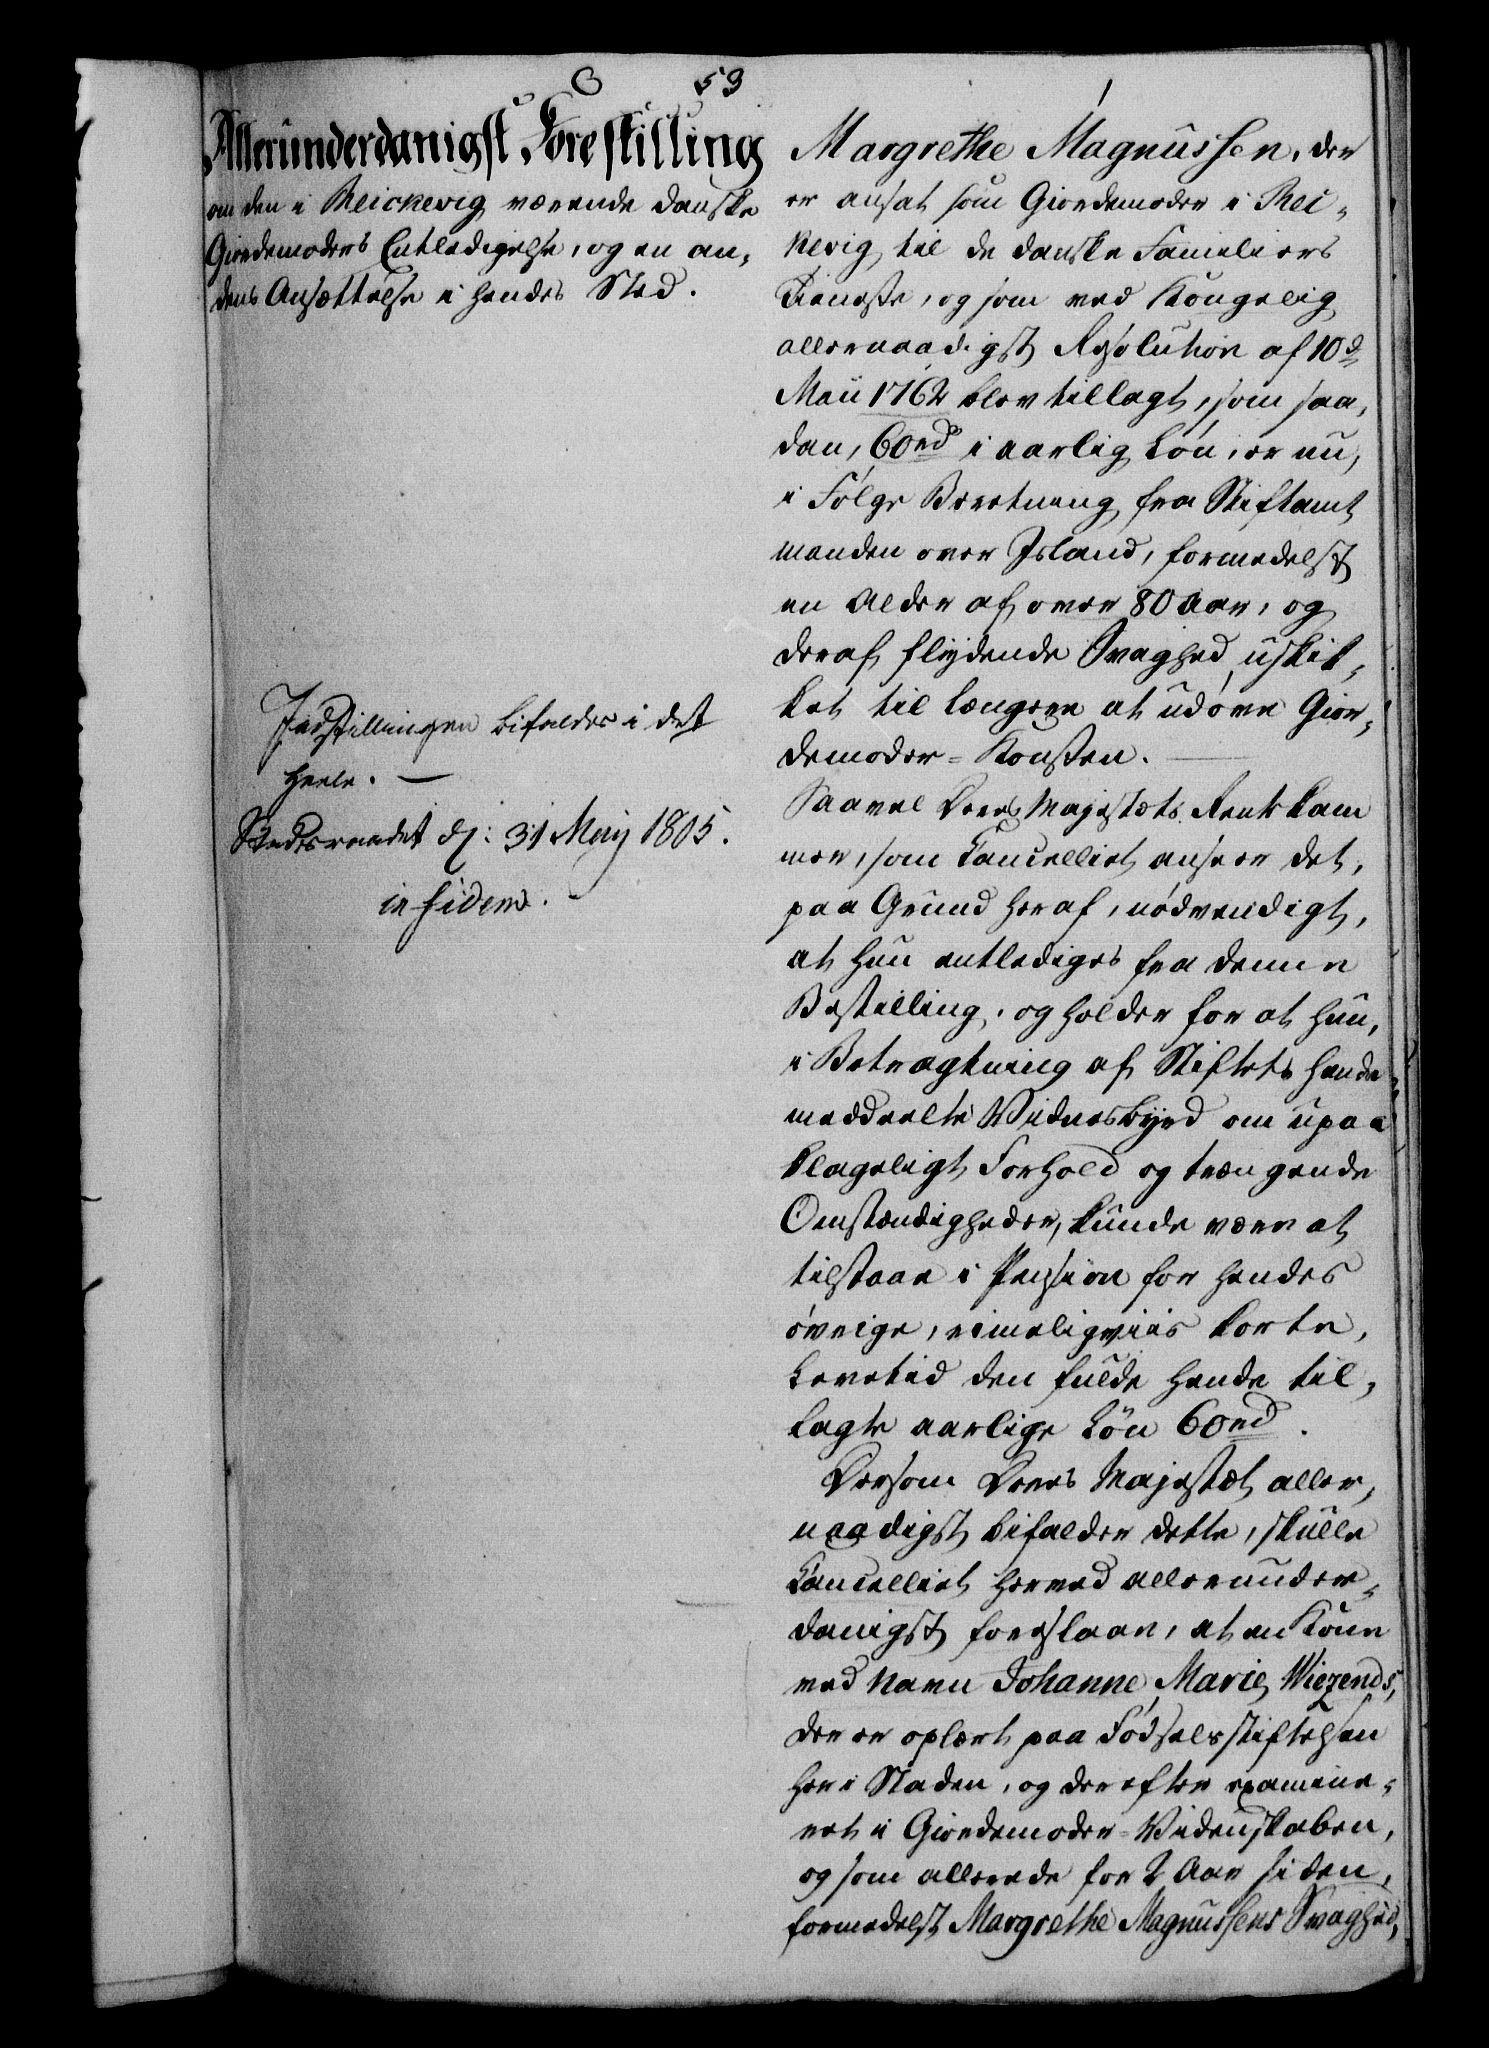 53
Allerunderdanigst Forestilling
om den i Reickevig værende danske
Giordemoders Entledigelse, og en an-
dens Ansættelse i hendes Sted.
Indstillingen bifaldes i det
heele. —
Stadsraadet d: 31 May 1805.
in fidem.
Margrethe Magnussen, der
er ansat som Giordemoder i Rei-
kevig til de danske Familiers
Tieneste, og som ved Kongelig
allernaadigst Resolution af 10de
Maii 1762 blev tillagt, som saa-
dan, 60 rd i aarlig Løn, er nu,
i Følge Beretning fra Stiftamt
manden over Island, formedelst
en Alder af over 80 Aar, og
deraf flydende Svaghed, uskik-
ket til længere at udøve Gior-
demoder-Konsten.
Saavel Deres Majestæts Rentekam
mer, som Cancelliet anseer det,
paa Grund heraf, nødvendigt,
at hun entlediges fra denne
Bestilling, og holder for at hun,
i Betragtning af Stiftets hende
meddeelte Vidnesbyrd om upaa
klageligt Forhold og trængende
Omstændigheder, kunde være at
tilstaae i Pension for hendes
øvrige, rimeligviis korte,
Levetid den fulde hende til-
lagte aarlige Løn 60 rd.
Dersom Deres Majestæt aller-
naadigst bifalder dette, skulle
Cancelliet herved allerunder-
danigst foreslaae, at en Kone
ved Navn Johanne Marie Wiezends,
der er oplært paa Fødselsstiftelsen
her i Staden, og derefter examine-
ret i Giordemoder-Videnskaben,
og som allerede for 2 Aar siden,
formedelst Margrethe Magnussens Svaghed,